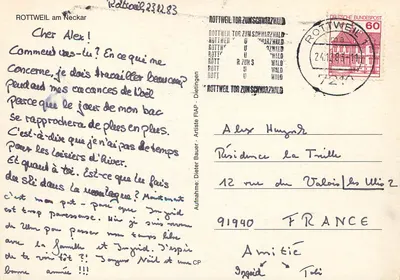 ROTTWEIL am Neckar
Rottweil, 23.12.83
Cher Alex!
Comment vas-tu? En ce qui me
concerne, je dois travailler beaucoup
Pendant mes vacances de Noël
Parce que le jour de mon bac
se rapprochera de plus en plus.
C'est-à-dire que je n'ai pas de temps
Pour les loisirs d'hiver.
Et quant à toi. Est-ce que tu fais
du ski dans la montagne? Maintenant
c'est mon - parce que Ingrid
est trop paresseuse. Hier je suis
de Ulm pour passer mon temps libre
avec la famille et Ingrid. J'espère
de te voir tôt?! Joyeux Noël et une
bonne année!!!
CP
Aufnahme: Dieter Bauer · Artiste FIAP · Deilingen
ROTTWEIL TOR ZUM SCHWARZWALD
ROTTWEIL TOR ZUM SCHWARZWALD
ROTTWEIL TOR ZUM SCHWARZWALD
ROTTWEIL
24.12.83
7210
DEUTSCHE BUNDESPOST
60
Alex
Résidence la Treille
12 rue du Valois/les Ulis 2
91940 FRANCE
Amitié
Ingrid